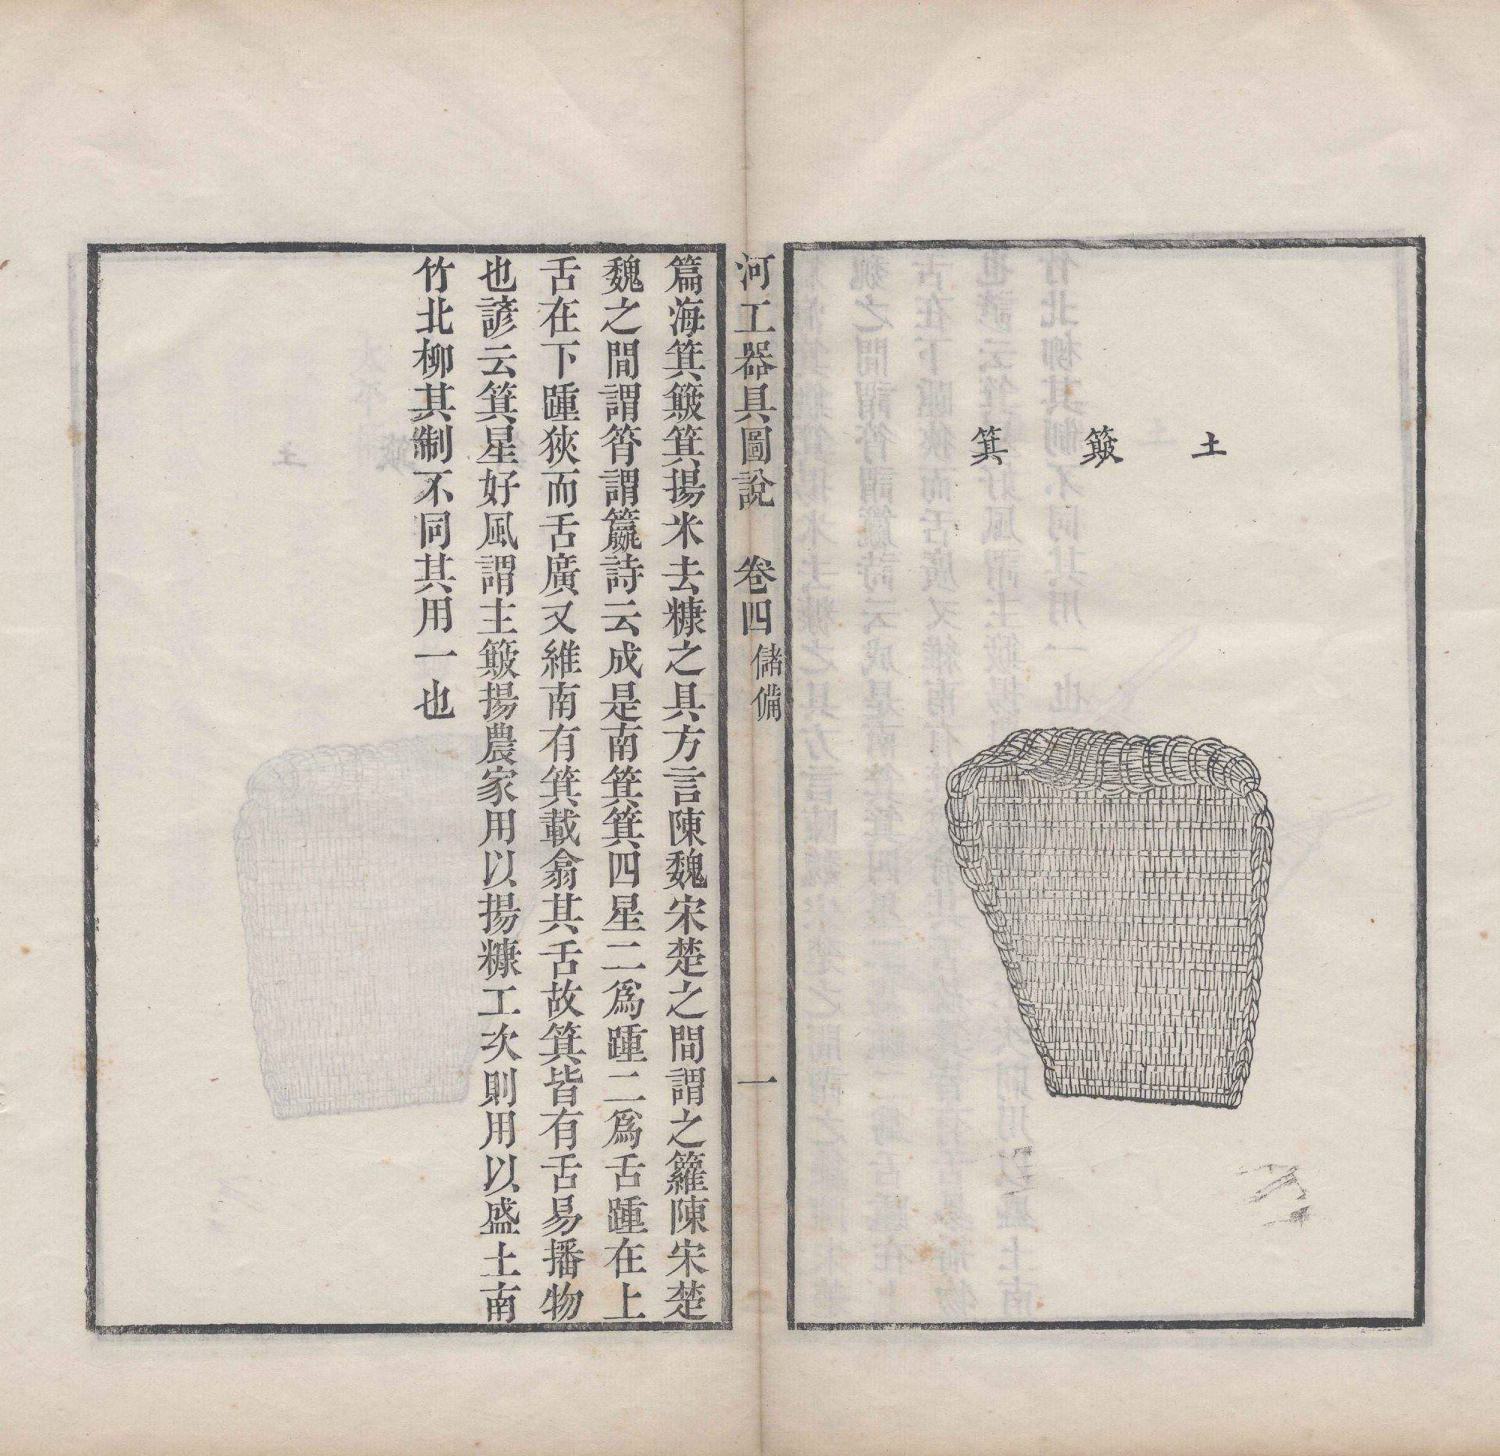 土簸箕
河工器具圖說 卷四 儲備 一
篇海箕簸箕揚米去糠之具方言陳魏宋楚之間謂之籮陳宋楚
魏之間謂筲謂籯詩云成是南箕箕四星二為踵二為舌踵在上
舌在下踵狹而舌廣又維南有箕載翕其舌故箕皆有舌易播物
也諺云箕星好風謂主簸揚農家用以揚糠工次則用以盛土南
竹北柳其制不同其用一也